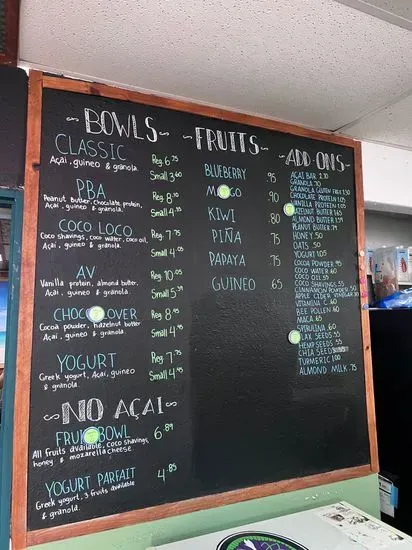 BOWLS
CLASSIC
Açai, guineo & granola.
Reg. 6.75
Small 3.60
PBA
Peanut Butter, chocolate protein,
Açai, guineo & granola.
Reg. 8.10
Small 4.35
COCO LOCO
Coco shavings, coco water, coco oil,
Açai, guineo & granola.
Reg. 7.75
Small 4.05
AV
Vanilla protein, almond butter,
Açai, guineo & granola.
Reg. 10.05
Small 5.39
Cocoa powder, hazelnut butter
Açai, guineo & granola.
Reg. 8.45
Small 4.45
YOGURT
Greek yogurt, Açai, guineo
& granola.
Reg. 7.75
Small 4.45
NO AÇAI
BOWL
All fruits available, coco shavings,
honey & mozarella cheese.
6.89
YOGURT PARFAIT
Greek yogurt, 3 fruits available
& granola.
4.85
FRUITS
BLUEBERRY 95
90
KIWI .80
PIÑA 75
PAPAYA 75
GUINEO 65
ADD-ONS
AÇAI BAR 2.30
GRANOLA .70
GRANOLA GLUTEN FREE 1.30
CHOCOLATE PROTEIN 1.05
VANILLA PROTEIN 1.05
HAZELNUT BUTTER 1.65
ALMOND BUTTER 1.55
PEANUT BUTTER .75
HONEY .50
OATS .50
YOGURT 1.05
COCOA POWDER .95
COCO WATER .60
COCO OIL .55
COCO SHAVINGS .55
CINNAMON POWDER .50
APPLE CIDER VINEGAR
VITAMIN C .60
BEE POLLEN .60
MACA .65
SPIRULINA .60
FLAX SEEDS .55
HEMP SEEDS .55
CHIA SEEDS
TURMERIC 1.00
ALMOND MILK .75